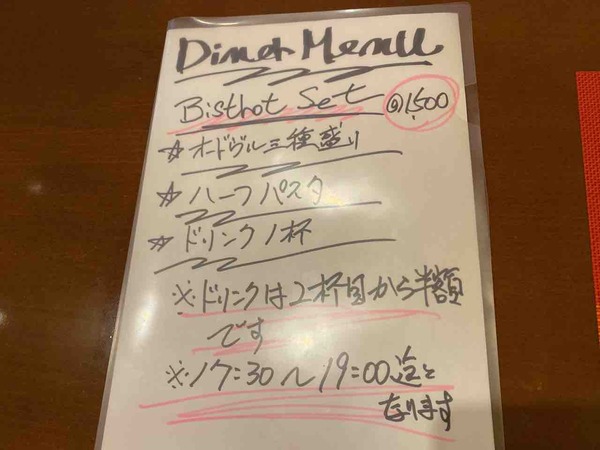 Diner Menu
Bisthot Set @1,500
☆オードヴル三種盛り
☆ハーフパスタ
☆ドリンク1杯
※ドリンクは2杯目から半額
です
※17:30～19:00迄と
なります